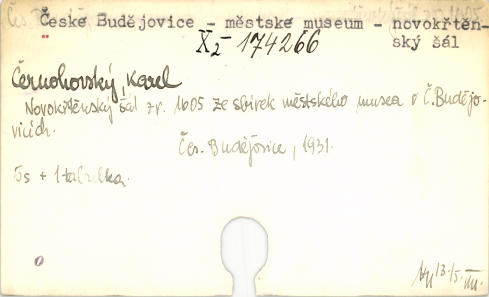 České Budějovice - městske museum - novokřtěn-
ský šál
X2 174266
Černohovský, Karel
Novokřtěnský šál z r. 1605 ze sbírek městského musea v Č. Budějo-
vicích.
Čes. Budějovice, 1931.
5s + 1 tabulka.
0
13.15.